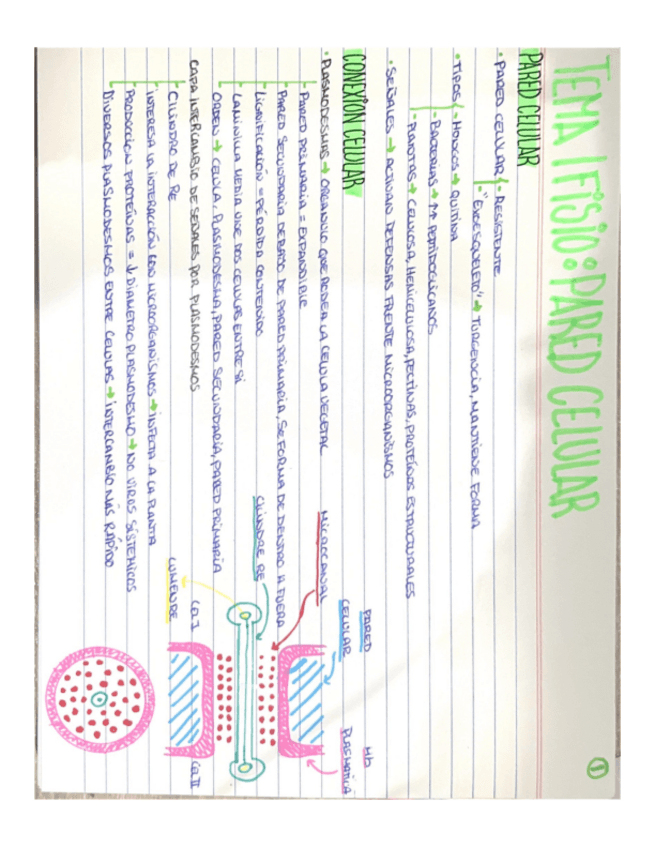 TEMA 1 FISIO: PARED CELULAR
①
PARED CELULAR
· PARED CELULAR - RESISTENTE
- "EXOESQUELETO" → TURGENCIA, MANTIENE FORMA
· TIPOS - HONGOS → QUITINA
- BACTERIAS → PEPTIDOGLICANOS
- PLANTAS → CELULOSA, HEMICELULOSA, PECTINAS, PROTEÍNAS ESTRUCTURALES
· SEÑALES → ACTIVAN DEFENSAS FRENTE MICROORGANISMOS
CONEXIÓN CELULAR
· PLASMODESMAS → ORGANULO QUE RODEA LA CELULA VEGETAL
- PARED PRIMARIA = EXPANDIBLE
- PARED SECUNDARIA DEBAJO DE PARED PRIMARIA, SE FORMA DE DENTRO A FUERA
- LIGNIFICACIÓN = PÉRDIDA CONTENIDO
- LAMINILLA MEDIA UNE DOS CELULAS ENTRE SI
- ORDEN → CELULA, PLASMODESMA, PARED SECUNDARIA, PARED PRIMARIA
CADA INTERCAMBIO DE SEÑALES POR PLASMODESMOS
- CILINDRO DE RE
- INTERESA LA INTERACCIÓN CON MICROORGANISMOS → INFECTA A LA PLANTA
- PRODUCCIÓN PROTEÍNAS = ↓ DIAMETRO PLASMODESMO → NO VIRUS SISTEMICOS
- DIVERSOS PLASMODESMOS ENTRE CELULAS → INTERCAMBIO MÁS RÁPIDO
PARED
CELULAR
Mb
PLASMATICA
MICROCANAL
CILINDRO RE
LUMEN RE
Cel I
Cel II